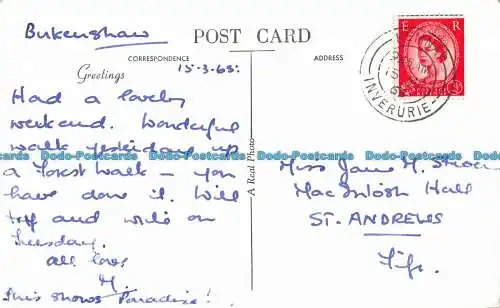 Birkenshaw
POST CARD
CORRESPONDENCE
ADDRESS
Greetings
15-3-65:
Had a lovely
weekend. Wonderful
walk yesterday up
a Forest walk - you
have done it. Will
try and write on
Tuesday.
all love
M.
This shows Paradise!
A Real Photo
Miss Jane M.
MacIntosh Hall
ST. ANDREWS
Fife.
E R
INVERURIE
Dodo-Postcards Dodo-Postcards Dodo-Postcards Dodo-Postcards Dodo-Postcards Dodo-Postcards